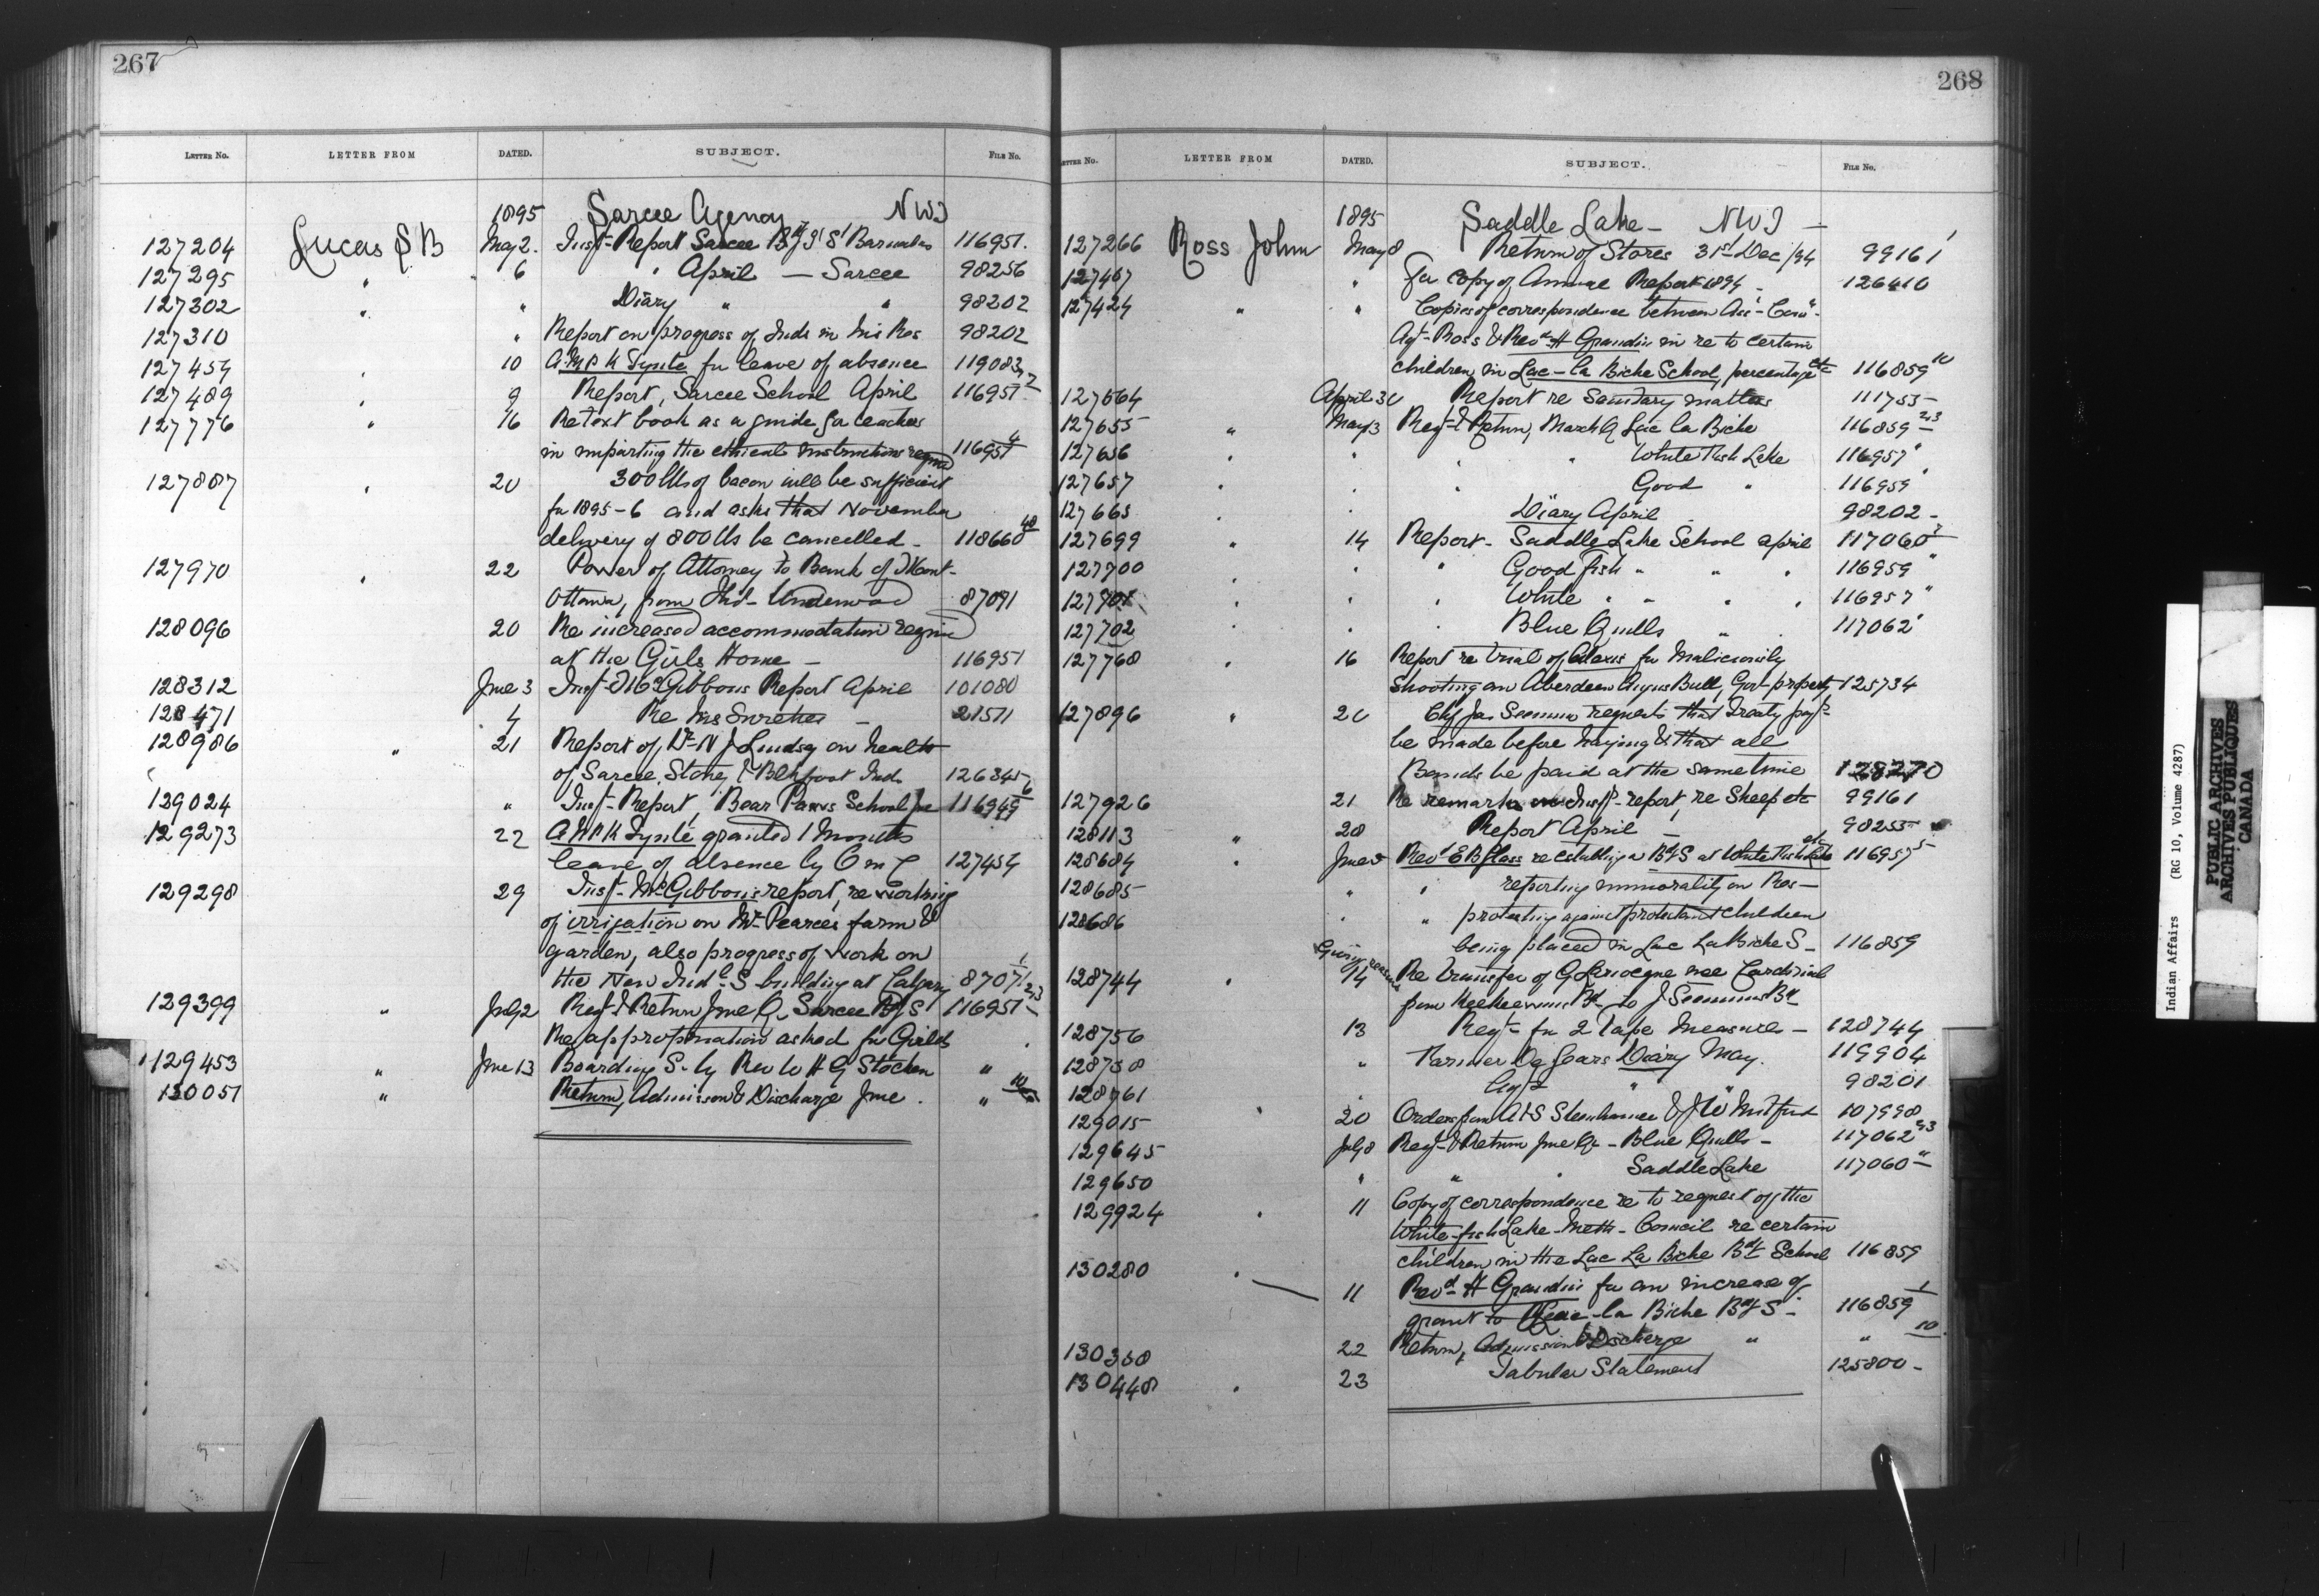 267
LETTER No. LETTER FROM DATED. SUBJECT. FILE No.
1895 Sarcee Agency NWT
127204 Lucas S B May 2. Insp- Report Sarcee Bdg S St Barnabas 116951.
127295 " 6 " April — Sarcee 98256
127302 " " Diary " " 98202
127310 " Report on progress of Inds in his Res 98202
127454 " 10 fr leave of absence 119083
127489 " 9 Report, Sarcee School April 116951 2
127776 " 16 Re text book as a guide for teachers
in imparting the ethical instructions reqd 116951 4
127887 " 20 300 lbs of bacon will be sufficient
fr 1895-6 and asks that November
delivery of 800 lbs be cancelled - 118660 48
127970 " 22 Power of Attorney to Bank of Mont-
Ottawa, from Thos- Underwood 87091
128096 20 Re increased accommodation reqd
at the Girls Home — 116951
128312 June 3 Insp- McGibbons Report April 101080
128471 4 Re Mrs — 21511
128986 " 21 Report of Dr- N J Lindsay on health
of Sarcee, Stoney & Blkfoot Inds 126345
129024 " Insp- Report, Bear Paws School Jne 116949 6
129273 22 granted 1 months
leave of absence by O m C 127454
129298 29 Insp- McGibbons report, re working
of irrigation on Mr Pearce's farm &
garden, also progress of work on
the New Indl- S- building at Calgary 87071 1
129399 " July 2 Reqt & Return June Q Sarcee B S 116951 2-3
Re appropriation asked for Girls
129453 " June 13 Boarding S- by Rev W H G Stocken "
130051 " Return, Admission & Discharge June . " 10
268
LETTER No. LETTER FROM DATED. SUBJECT. FILE No.
1895 Saddle Lake — NWT —
127266 Ross John May 8 Return of Stores 31st Dec/94 99161
127407 " Fr copy of Annual Report 1894 - 126410
127424 " " Copies of correspondence between Ass- Com-
Agt- Ross & Revd- H Grandin in re to certain
children in Lac-la Biche School, percentage etc 116859 10
127564 April 30 Report re Sanitary matters 111753-
127655 " May 3 Reqt & Return, March Q Lac la Biche 116859 2-3
127656 " " " White Fish Lake 116957 "
127657 " " " Good " 116959 "
127665 " " Diary April 98202 -
127699 " 14 Report - Saddle Lake School april 117060 2
127700 " " " Good fish " " " 116959 "
127701 " " " White " " " " 116957 "
127702 " " " Blue Quills " " 117062 "
127768 " 16 Report re trial of Alexis fr Maliciously
shooting an Aberdeen Angus Bull, Govt- property 125734
127896 " 20 Chf Jas Seenum requests that Treaty payt-
be made before haying & that all
Bands be paid at the same time 128270
127926 21 Re remarks on Insp- report, re Sheep etc 99161
128113 " 28 Report April — 98255
128684 " June 5 Revd E B Glass re establishing a Bdg S at White Fish Lake etc 116957 5
128685 " " reporting immorality on Res —
128686 " " protesting against protestant children
being placed in Lac La Biche S - 116859
Giving reasons
128744 " 14 Re transfer of G nee Cardinal
from Keeheewins Bd to J Seenums Bd
128756 13 Reqt- fr 2 Tape Measures - 128744
128758 " Farmer Diary May. 119904
128761 " Agts " 98201
129015 " 20 Orders from A & S Steinhauer & J W Mitford 107998
129645 July 8 Reqt- & Return June Qr - Blue Quills - 117062 2-3
129650 " " " Saddle Lake 117060 "
129924 " 11 Copy of correspondence re to request of the
White-fish Lake- Meth- Council re certain
children in the Lac La Biche Bdg School 116859
130280 " 11 Revd- H Grandin fr an increase of
grant to Lac-la Biche Bdg S - 116859 1
130358 22 Return, Admission & Discharge " " 10
130448 " 23 Tabular Statement 125800 -
Indian Affairs (RG 10, Volume 4287)
PUBLIC ARCHIVES
ARCHIVES PUBLIQUES
CANADA